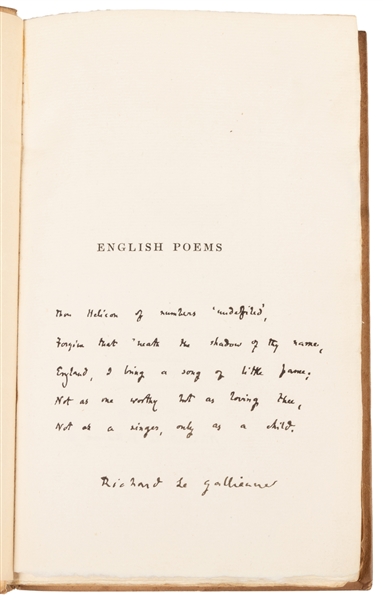 ENGLISH POEMS
Thou Helicon of numbers 'undefiled',
Forgive that 'neath the shadow of thy name,
England, I bring a song of little fame;
Not as one worthy but as loving thee,
Not as a singer, only as a child.
Richard Le Gallienne